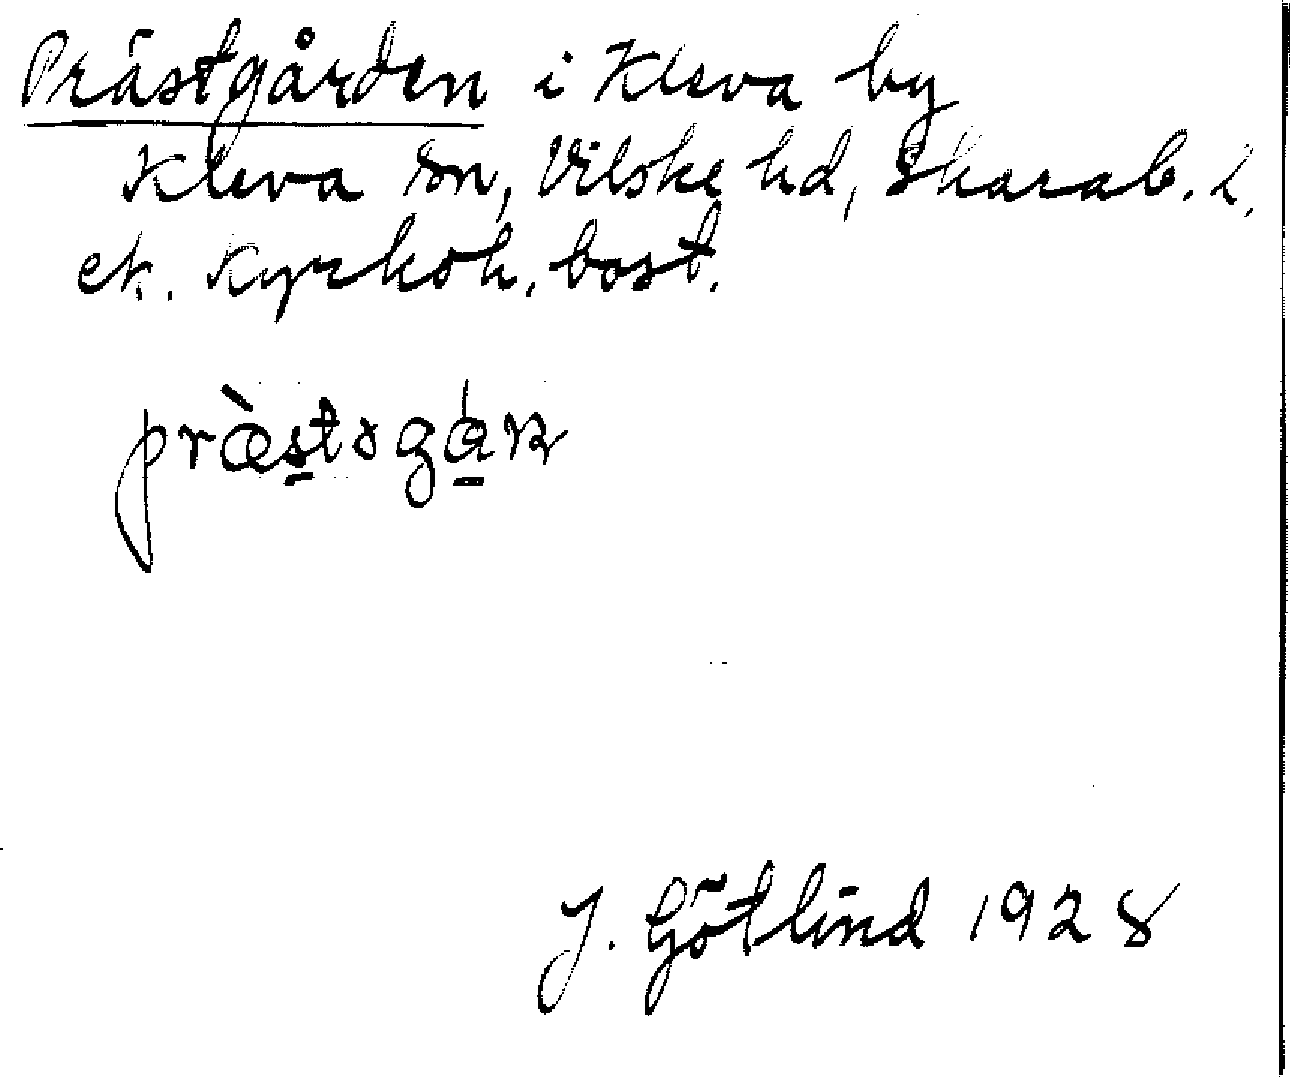 Prästgården i Kleva by
Kleva sn, Vilske hd, Skarab. l.
ek. Kyrkoh. bost.
J. Götlind 1928